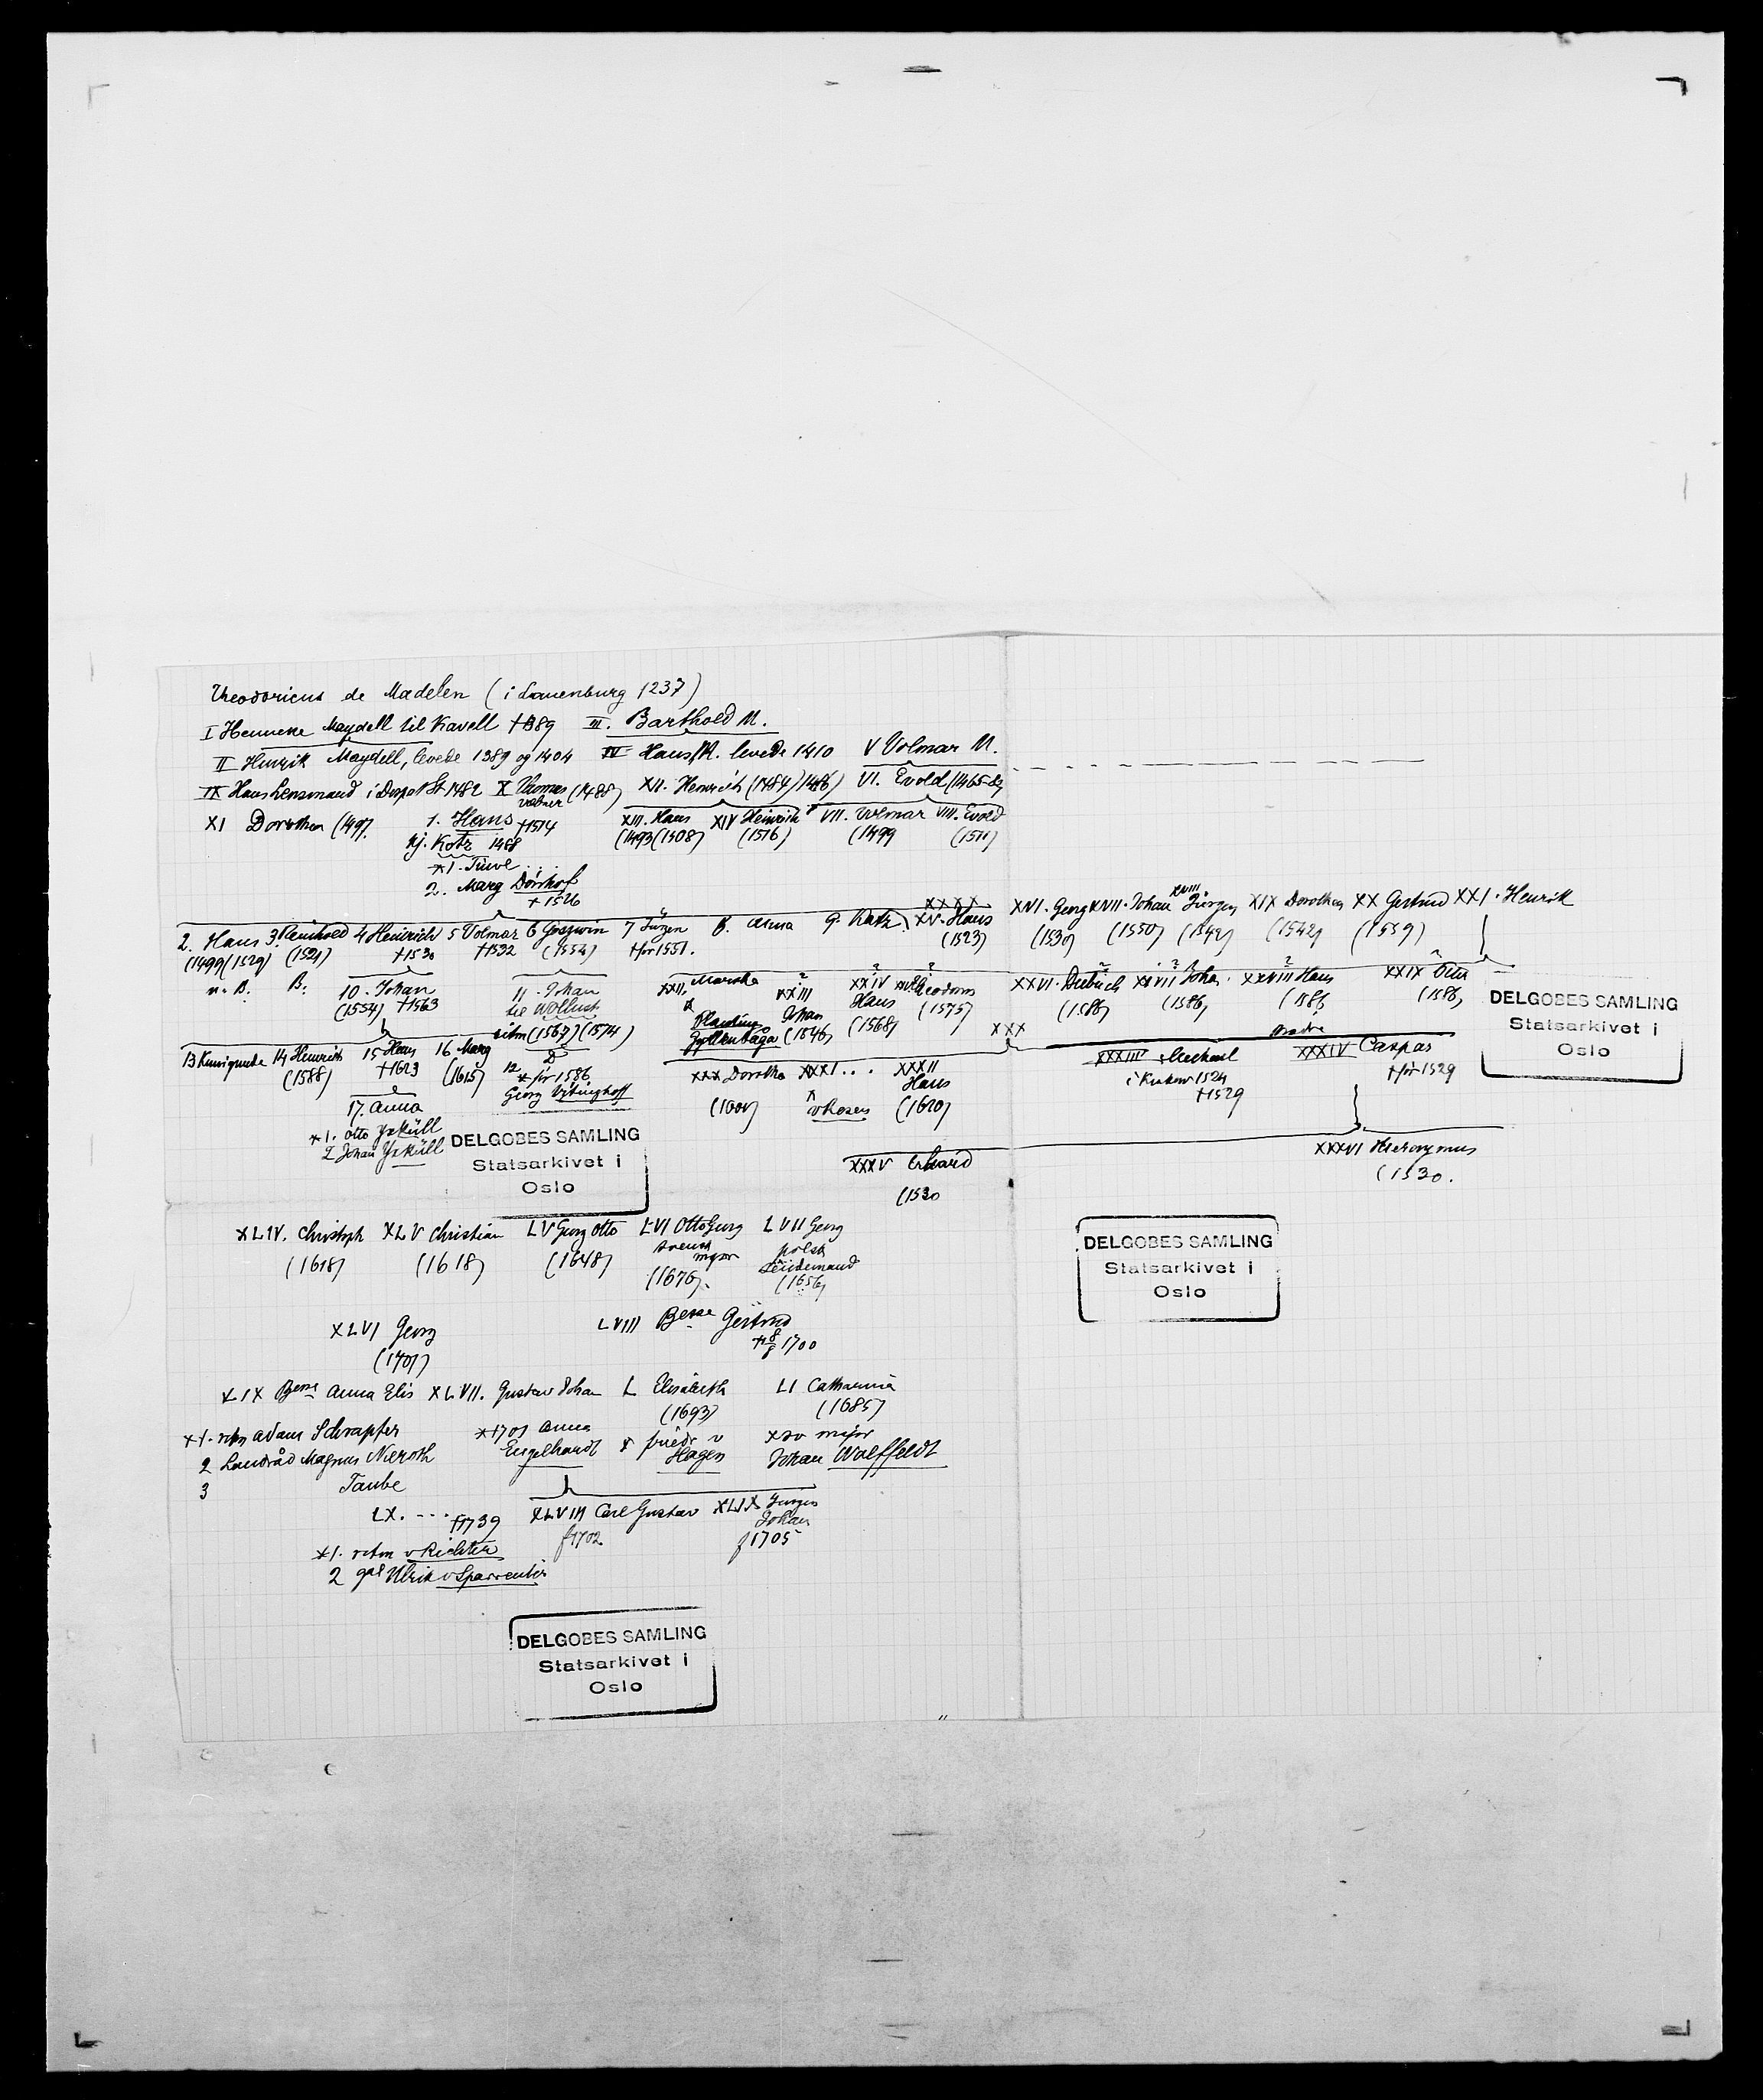 Theodoricus de Madelen (i Lauenburg 1237)
I Henneke Maydell til Kavell †1389 III. Barthold M.
II Henrik Maydell, levede 1389 og 1404 IV Hans M. levede 1410 V Volmar M.
IX Hans Lensmand i Dorpat St 1482 X Thomas (1488) XII. Heinrich (1484)(1486) VI. Evold (1465-
XI Dorothea (1497. 1. Hans †1514 XIII. Hans XIV Heinrich VII. Volmar VIII. Evold
kj. Kotz 1488 (1493(1508) (1516) (1499 (1511)
*1. Tuve ...
2. Marg Dönhof
†1526
XXXX XVIII
2. Hans 3. Reinhold 4 Heinrich 5 Volmar 6 Goswin 7 Jürgen 8. Anna 9. Kath. XV. Hans XVI. Georg XVII. Johan Jürgen XIX Dorothea XX Gertrud XXI. Henrik
(1499(1529) (1521) †1530 †1532 (1554) †før 1551. (1523) (1530) (1550) (1542) (1542) (1559)
n. B. B. 10. Johan 11. Johan XXII. XXIII XXIV Theodorus XXVI. Dietrich XXVII Johan XXVIII Hans XXIX Otto
(1554) †1563 til Wollust Johan Hans (1575) (1586) (1586) (1586) (1586)
Gyllenbåga (1546) (1568)
ritm (1567)(1574)
XXX
13 Kunigunde 14 Heinrich 15 Hans 16 Marg
(1588) †1623 (1615) 12 * før 1586 XXX Dorothea XXXI... XXXII Hans XXXIII Michael XXXIV Caspar
Georg Vitinghoff i Krakow 1524 †før 1529
†1529
17. Anna (1600) v Rosen (1620)
*1. Otto Yxküll
2 Johan Yxküll
XXXV Erhard XXXVI Hieronymus
(1530 (1530.
DELGOBES SAMLING
Statsarkivet i
Oslo
DELGOBES SAMLING
Statsarkivet i
Oslo
XLIV. Christoph XLV Christian LV Georg Otto LVI Otto Georg LVII Georg
(1618) (1618) (1648) svensk major polsk
(1676). (1656)
DELGOBES SAMLING
Statsarkivet i
Oslo
XLVI Georg LVIII Gertrud
(1701) 1700
LIX Anna Elis XLVII. Gustav Johan L Elisabeth LI Catharina
(1693) (1685)
*1. ritm Adam Schrapfer *1701 Anna Engelhardt * friedr v Hagen * sv major
2 Landråd Magnus Nieroth Johan Wolffeldt
3 Taube
LX. ... †1739 XLVIII Carl Gustav XLIX Jürgen Johan
f 1702 f 1705
*1. ritm v Richter
2 gal Ulrik v Sparrenber
DELGOBES SAMLING
Statsarkivet i
Oslo